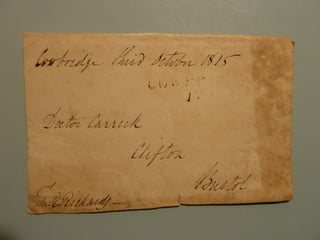 Cowbridge third October 1815
COWB
Doctor Carrick
Clifton
Bristol
Richards